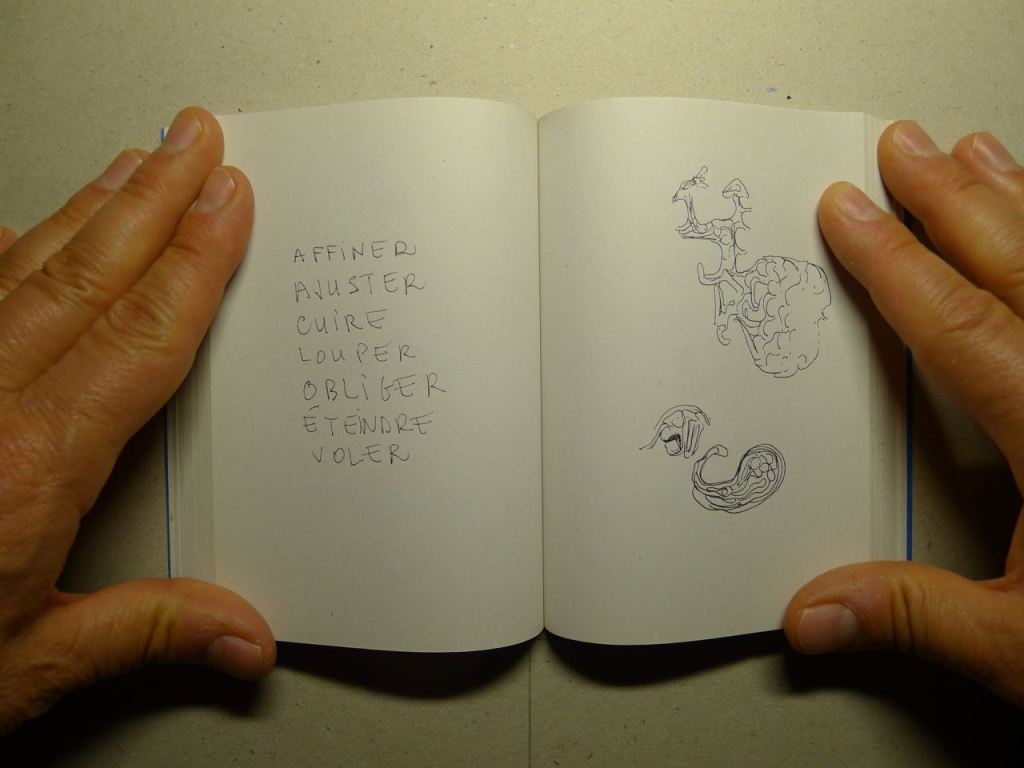 AFFINER
AJUSTER
CUIRE
LOUPER
OBLIGER
ÉTEINDRE
VOLER